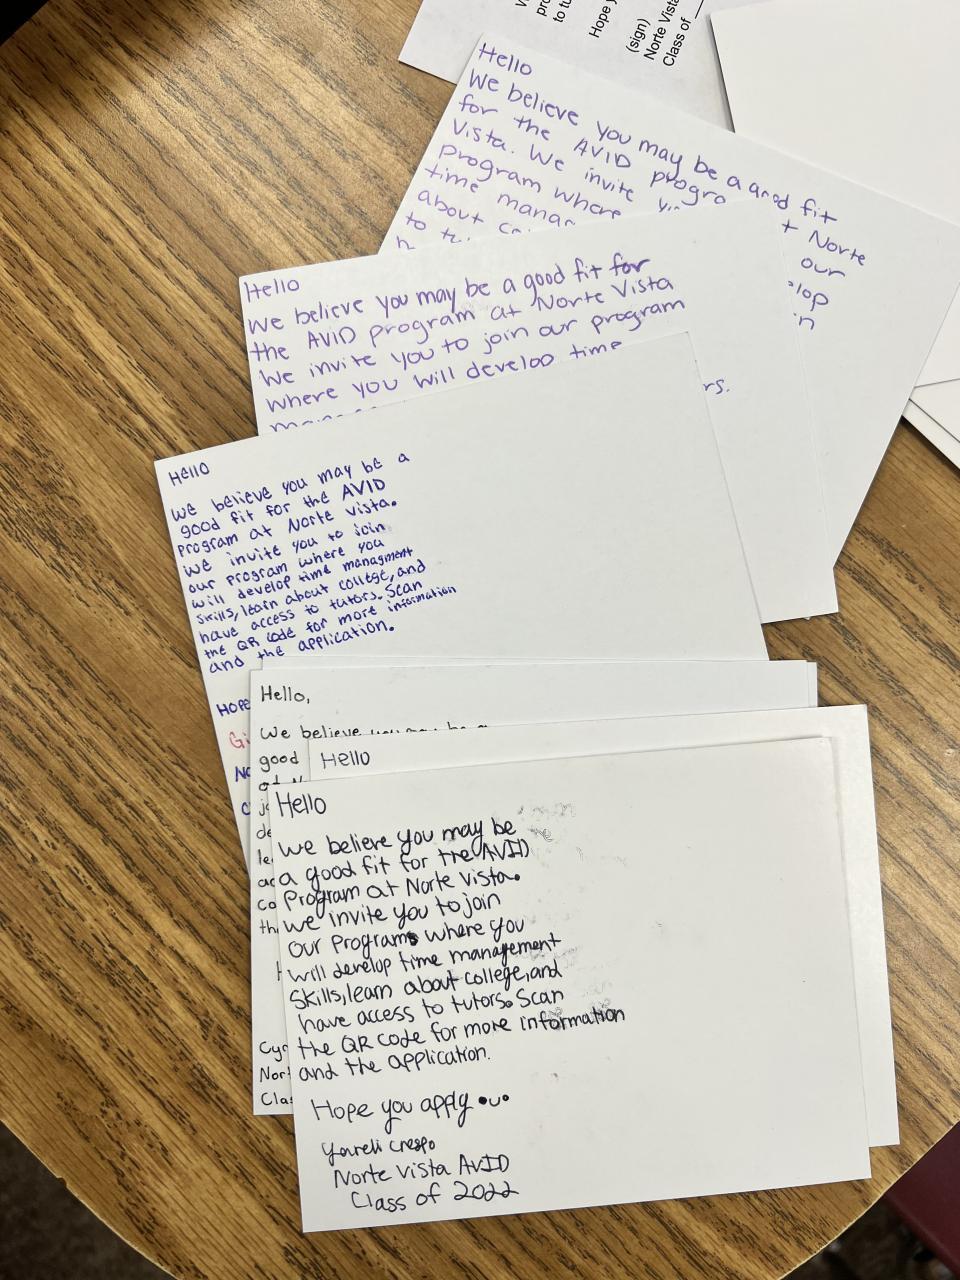 to tu
Hope y
(sign)
Norte Vista
Class of
Hello
We believe you may be a good fit
for the AVID progra t Norte
Vista. We invite our
program where lop
time manag in
about co
to tu rs.
Hello
We believe you may be a good fit for
the AVID program at Norte Vista
We invite you to join our program
where you will develop time
Hello
we believe you may be a
good fit for the AVID
program at Norte Vista.
we invite you to join
our program where you
will develop time managment
skills, learn about college, and
have access to tutors. Scan
the QR code for more information
and the application.
Hope
Gi
No
Hello,
We believe you may be a
good
de
le
ac
co
th
H
Cyn
Nor
Clas
Hello
Hello
we believe you may be
a good fit for the AVID
Program at Norte Vista.
we invite you to join
our program where you
will develop time management
skills, learn about college, and
have access to tutors. Scan
the QR code for more information
and the application.
Hope you apply •u•
Yareli Crespo
Norte Vista AVID
Class of 2022